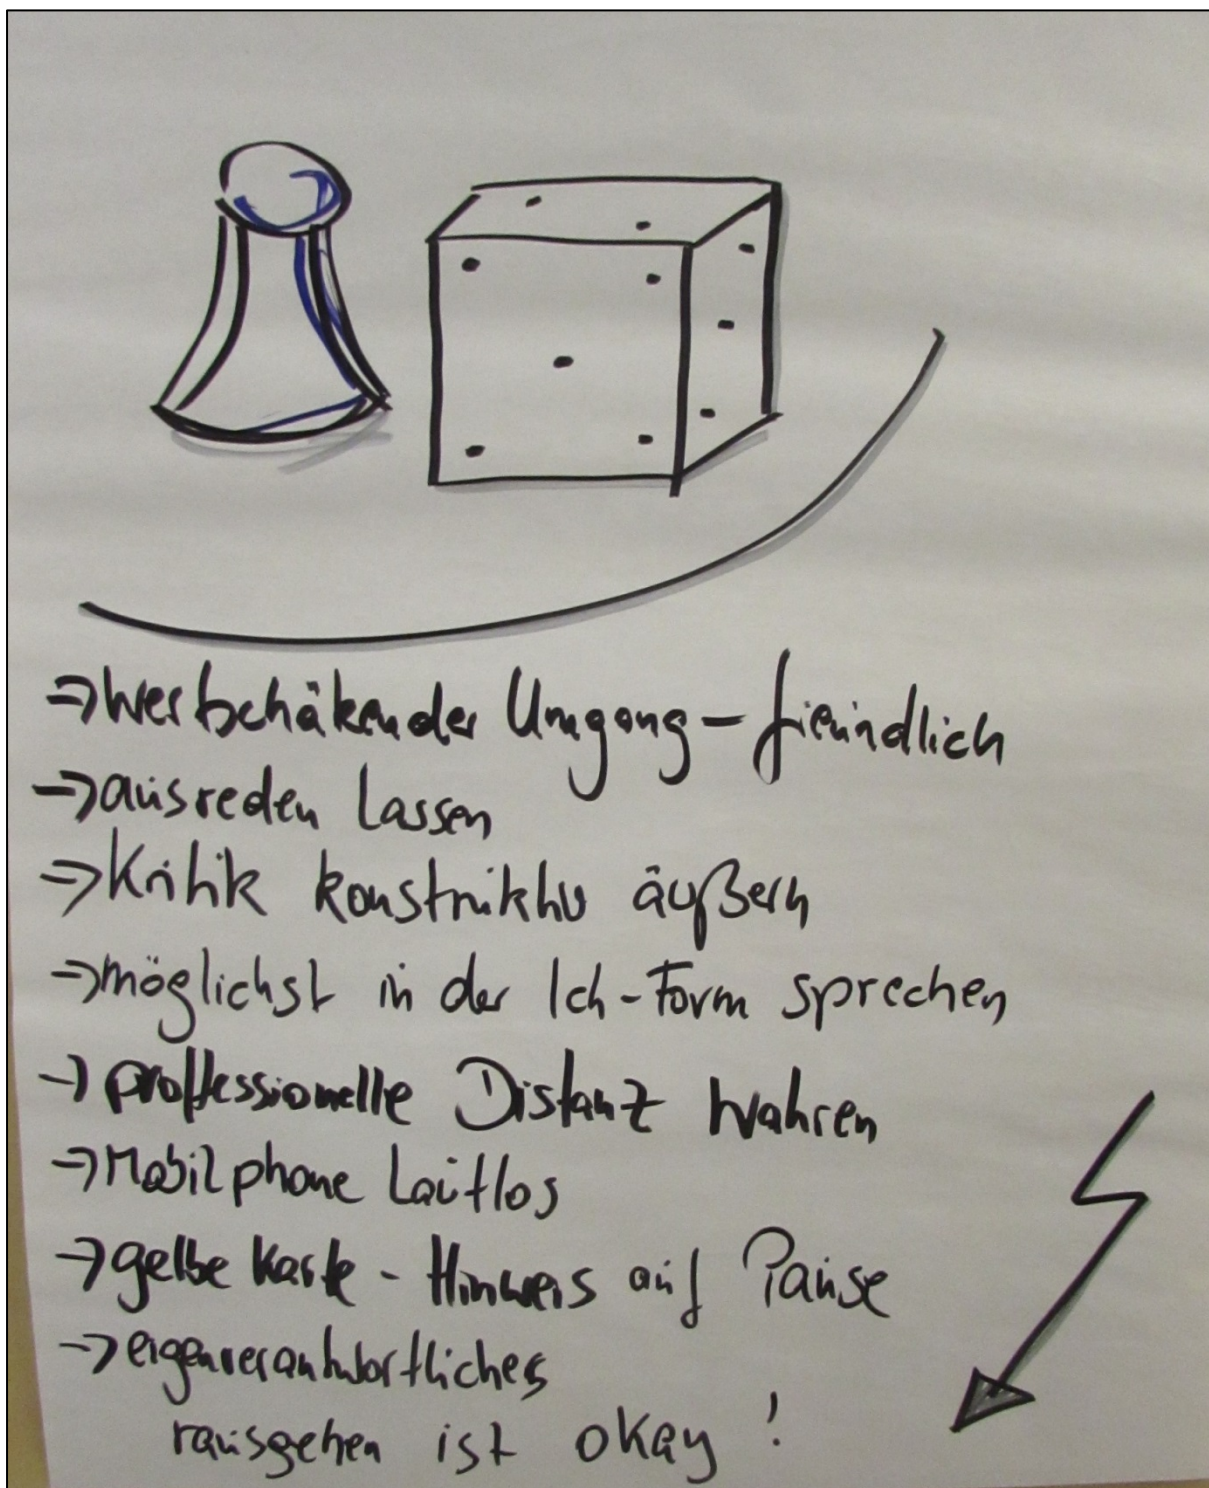 → wertschätzender Umgang – freundlich
→ ausreden lassen
→ Kritik konstruktiv äußern
→ möglichst in der Ich-Form sprechen
→ proffessionelle Distanz wahren
→ Mobilphone Lautlos
→ gelbe Karte - Hinweis auf Pause
→ eigenverantwortliches
rausgehen ist okay !